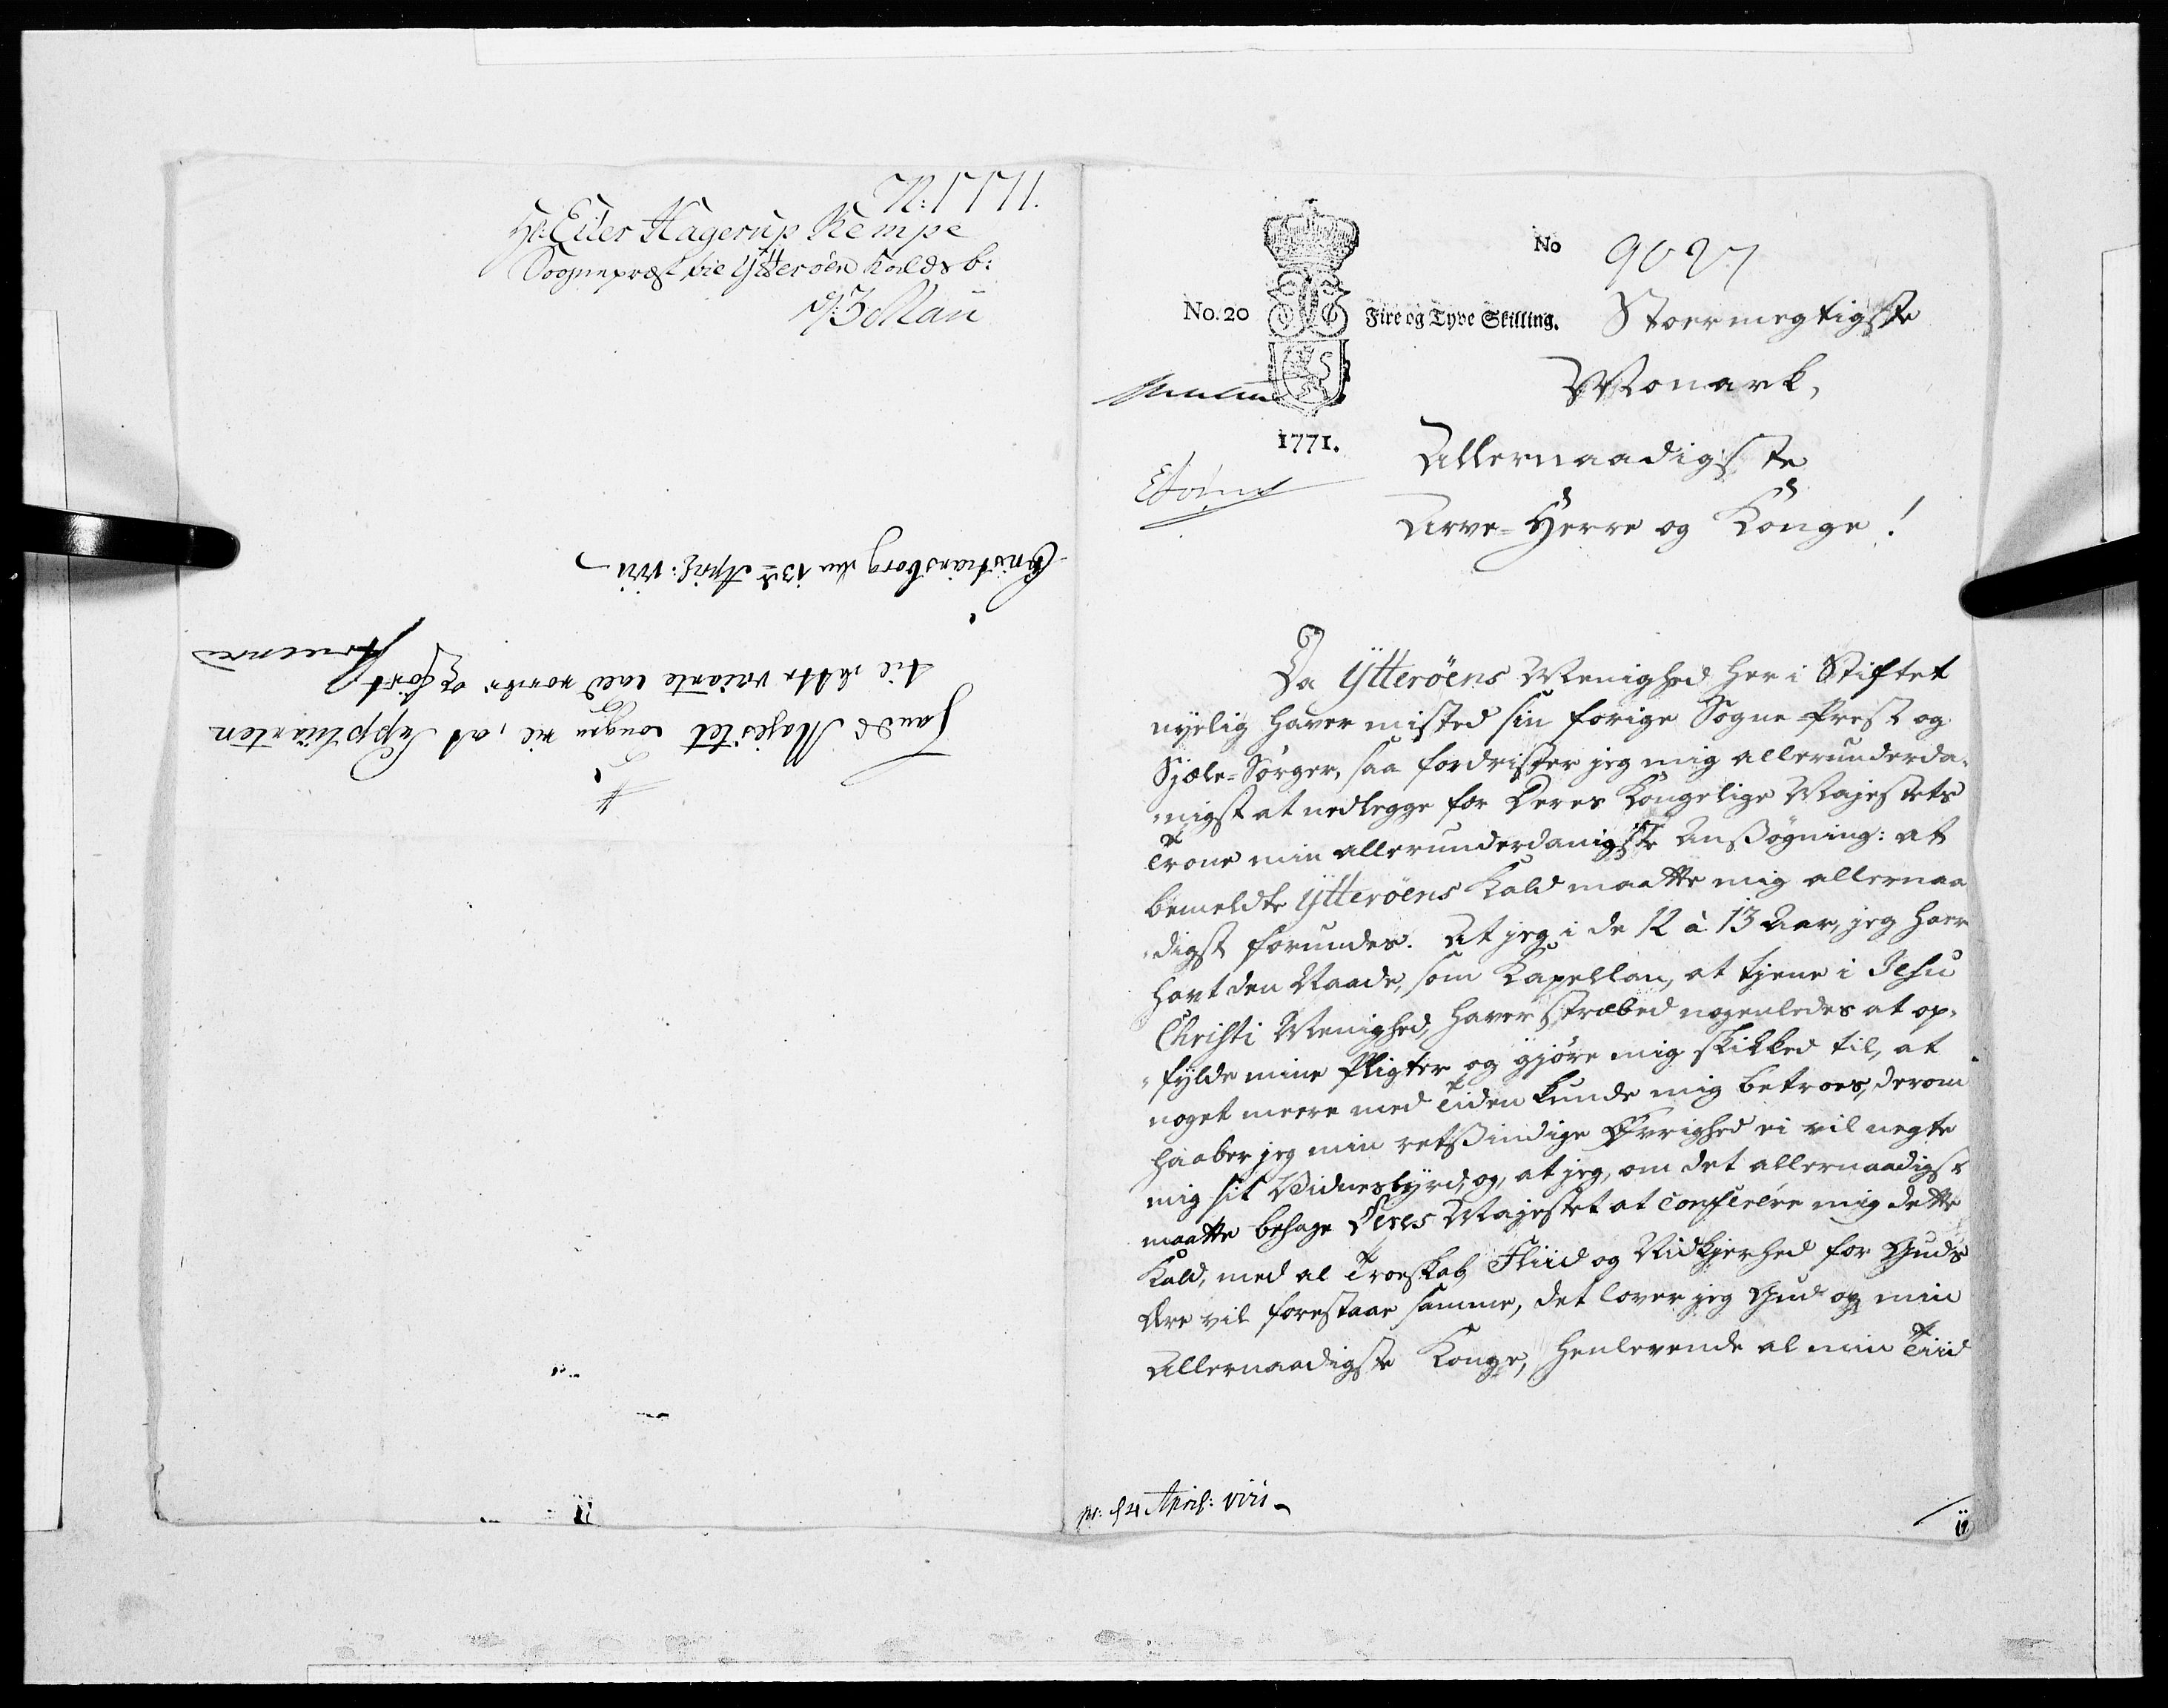 N: 1771.
Hr: Eiler Hagerup Kempe
Sognepræst vie Ytterøen Kalds b:
d: 3 Maii
Hands Majestet
til, at Supplicanten
til dette vacante Kald
Christiansborg den 13de April: 1771
No 9027
No. 20 Fire og Tyve Skilling.
1771.
Stoermegtigste
Monark,
Allernaadigste
Arve-Herre og Konge!
Da Ytterøens Menighed her i Stiftet
nyelig haver misted sin forige Sogne-Prest og
Sjæle-Sørger, saa fordrister jeg mig allerunderda-
nigst at nedlegge for Deres Kongelige Majestets
Trone min allerunderdanigste Ansøgning: at
bemeldte Ytterøens Kald maatte mig allernaa
digst forundes. At jeg i de 12 à 13 Aar, jeg haver
havt den Naade, som Kapellan, at tjene i Jesu
Christi Menighed, haver stræbed nogenledes at op-
fylde mine Pligter og gjøre mig skikked til, at
noget meere med Tiden kunde mig betroes, derom
haaber jeg min retsindige Øvrighed ei vil negte
mig sit Vidnesbyrd, og, at jeg, om det allernaadigst
maatte behage Deres Majestet at conferere mig dette
Kald, med al Troeskab Fliid og Nidkjerhed for Guds
Ære vil forestaae samme, det lover jeg Gud og min
Allernaadigste Konge, henlevende al min Tiid
pr: d 4 April: 1771